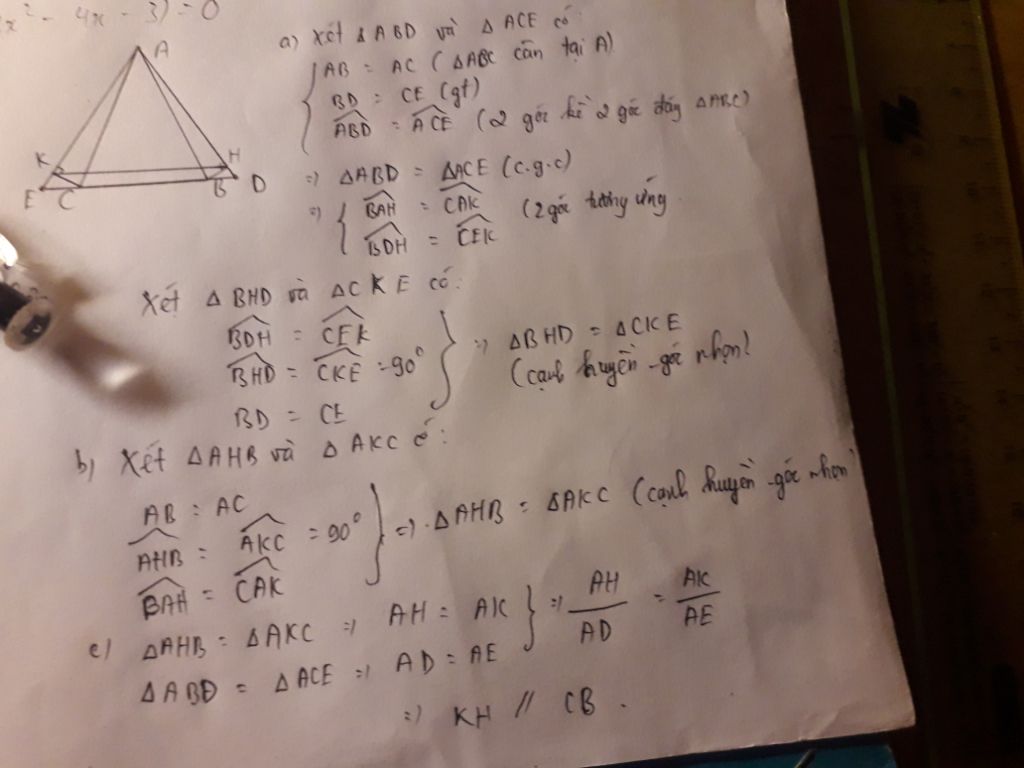 x² - 4x - 3) = 0
A
K
H
E
C
B
D
a) Xét Δ ABD và Δ ACE có:
AB = AC (ΔABC cân tại A)
BD = CE (gt)
ABD = ACE (2 góc kề 2 góc đáy ΔABC)
=> ΔABD = ΔACE (c.g.c)
=> BAH = CAK (2 góc tương ứng
BDH = CEK
Xét Δ BHD và ΔCKE có:
BDH = CEK
BHD = CKE = 90°
BD = CE
=> ΔBHD = ΔCKE
(cạnh huyền - góc nhọn)
b) Xét ΔAHB và Δ AKC có:
AB = AC
AHB = AKC = 90°
BAH = CAK
=> ΔAHB = ΔAKC (cạnh huyền - góc nhọn)
c) ΔAHB = ΔAKC => AH = AK
ΔABD = ΔACE => AD = AE
=> AH/AD = AK/AE
=> KH // CB.